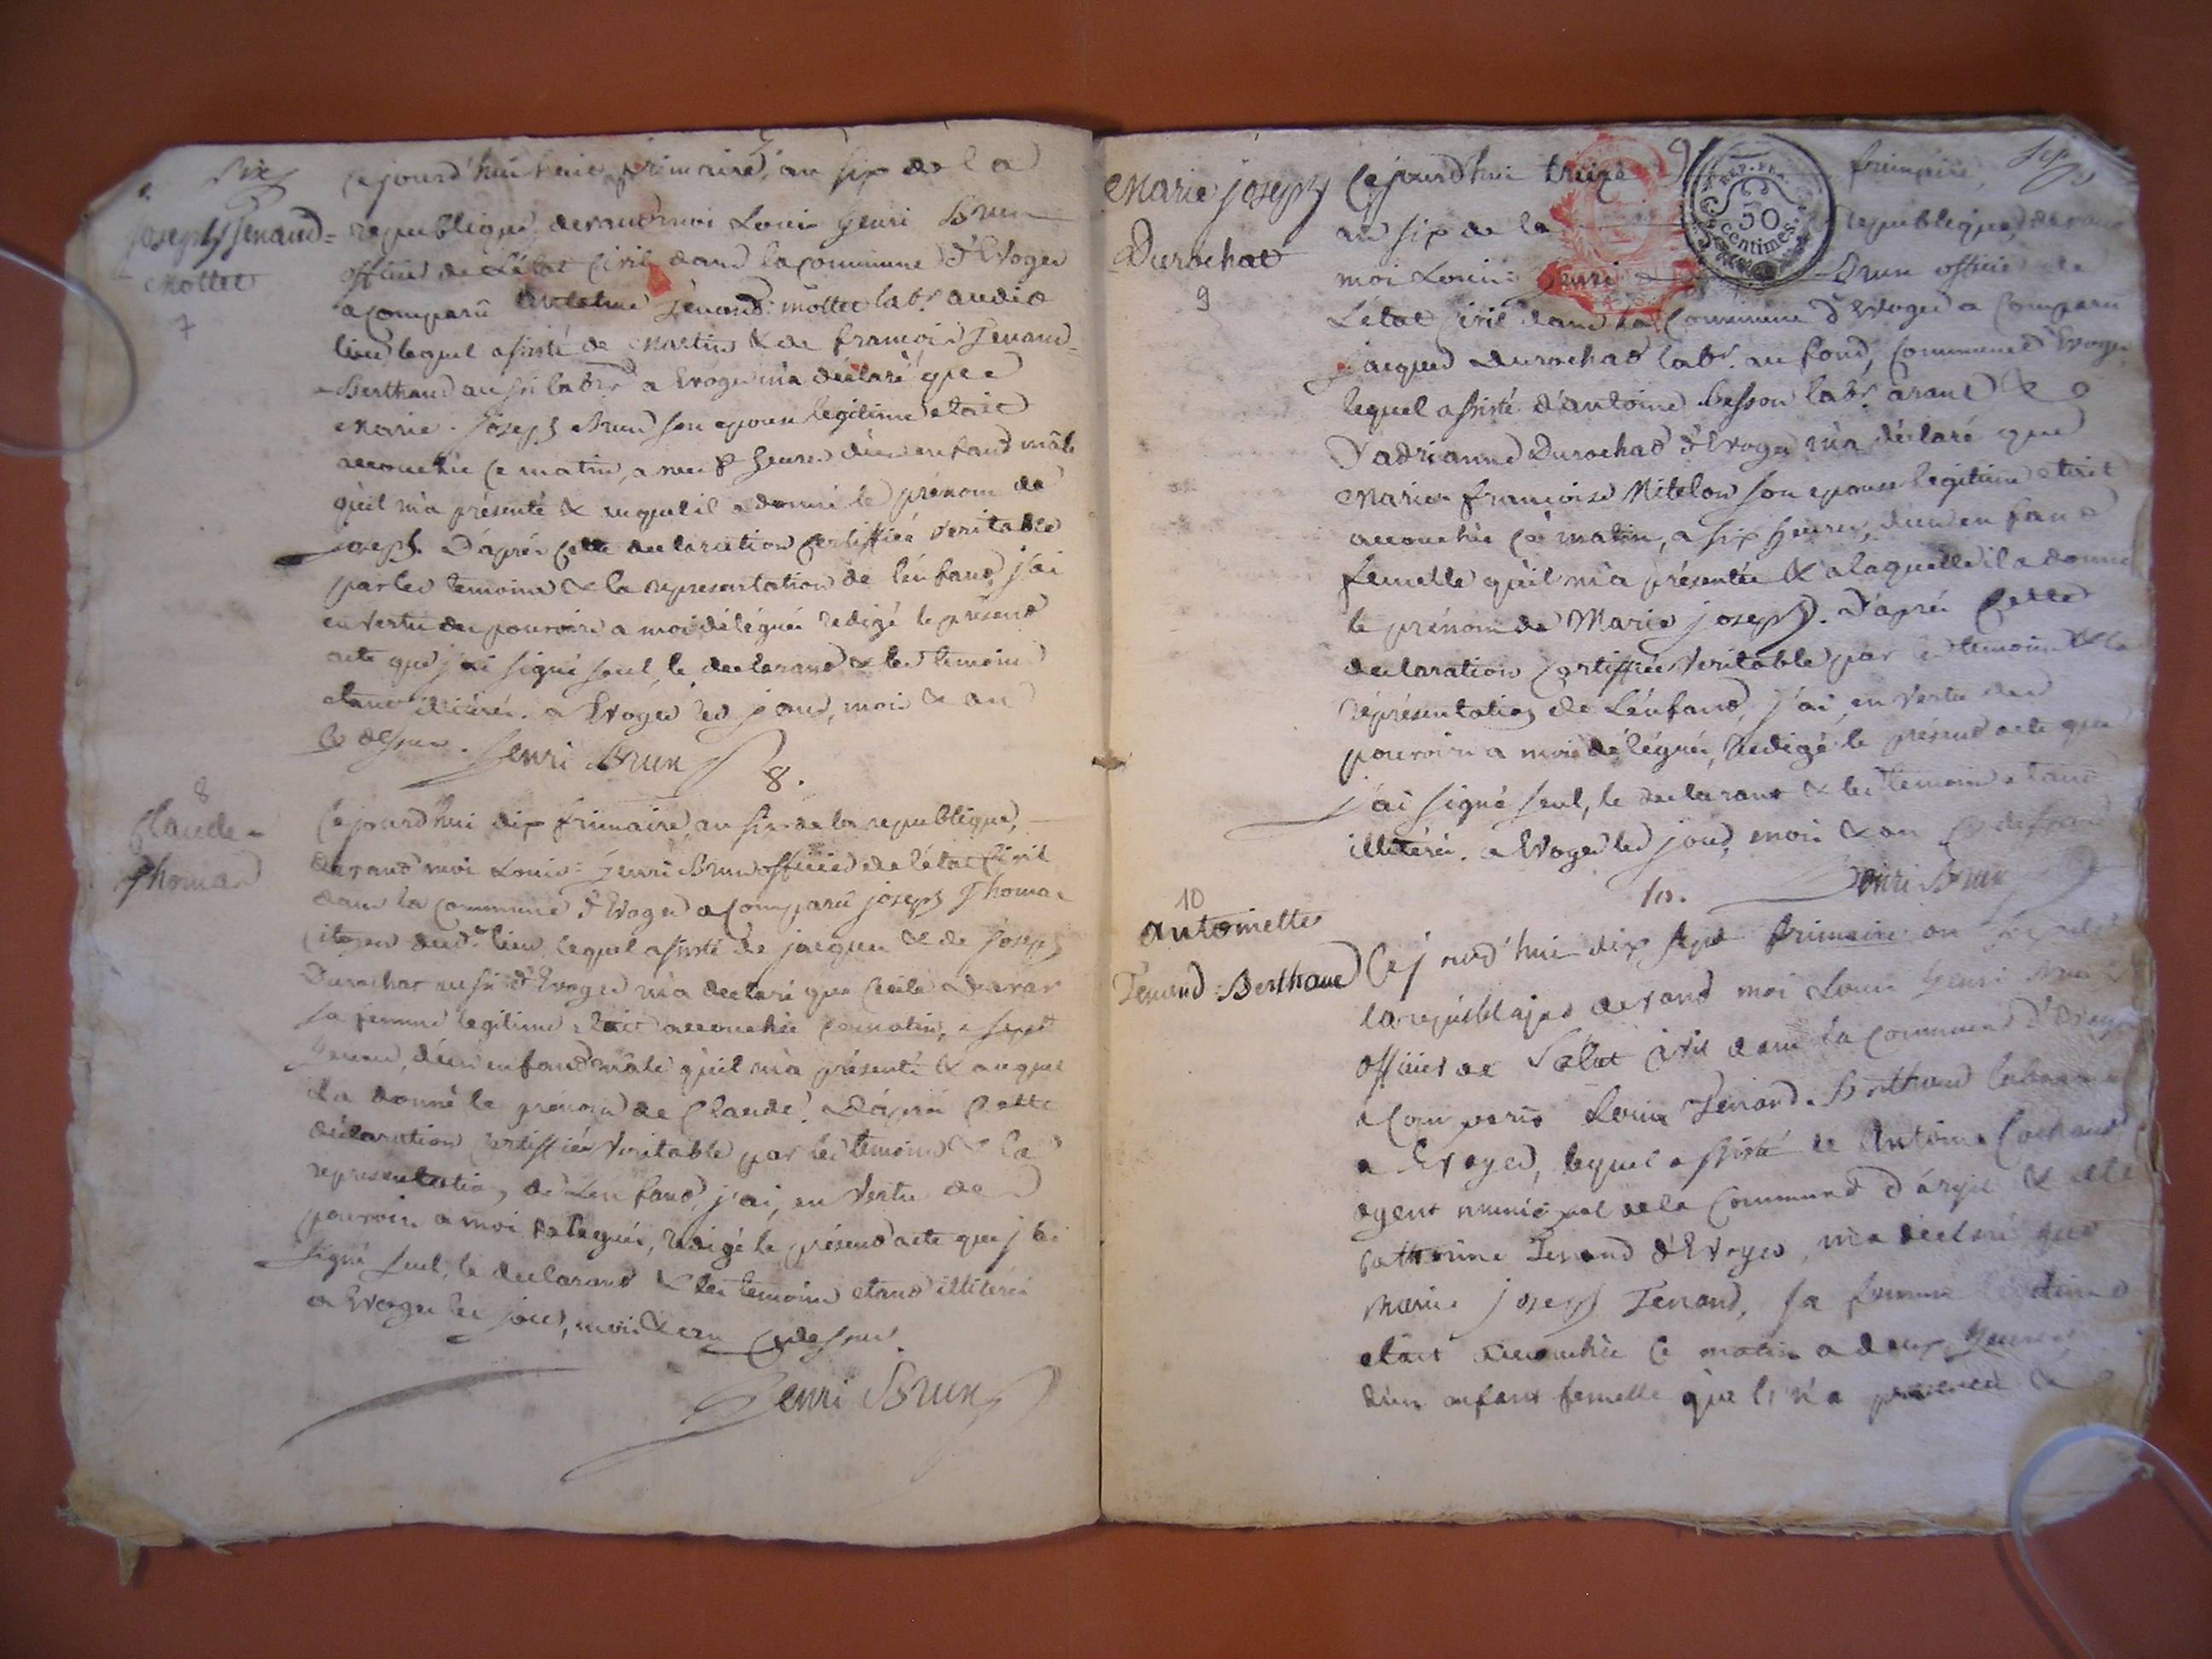 Six
Joseph Tenand=
Mottet
7
7
Cejourd'hui huit frimaire, an six de la
republique, devand moi Louis Henri Brun
officier de L'état Civil dans la commune d'Evoges
a comparû Antelme Tenand: mottet labr. audit
lieu, lequel assisté de Martin & de francois Tenand=
=Berthaud aussi labrs a Evoges m'a déclaré que
Marie-Joseph Brun son epouse legitime etait
accouchée ce matin, a neuf heures d'un enfand mâle
qu'il m'a présenté & auquel il a donné le prénom de
Joseph. D'après cette declaration certiffiée veritable
par les temoins & la representation de l'enfand, j'ai
en vertu des pouvoirs a moi délégués redigé le présend
acte que j'ai signé seul, le declarand & les temoins
etand illiterés. a Evoges les jour, mois & an
Ce dessus. Henri Brun
8.
8
Claude=
Thomas
Cejourd'hui dix frimaire, an six de la republique,
devand moi Louis: Henri Brun officier de l'état Civil
dans la commune d'Evoges a comparû joseph Thomas
citoyen dudt. lieu, lequel assisté de jacques & de Joseph
Durochat aussi d'Evoges m'a declaré que Cécile Deavar
sa femme legitime etait accouchée ce matin, a sept
heures, d'un enfand mâle qu'il m'a présenté & auquel
il a donné le prénom de Claude. D'après cette
déclaration certiffiée veritable par les temoins & la
representation de L'enfand, j'ai, en vertu des
pouvoirs a moi délégués, redigé le présend acte que j'ai
signé seul, le declarand & les temoins etand illiterés
a Evoges les jour, mois & an Ce dessus.
Henri Brun
Sept
Marie joseph
Durochat
9
9
REP. FRA.
50
centimes
Cejourd'hui treize frimaire,
an six de la republique, devand
moi Louis: Henri Brun officier de
L'état Civil dans la Commune d'Evoges a Comparû
Jacques Durochat labr. au fond, Commune d'Evoges
lequel assisté d'antoine Besson labr. arant &
D'adrianne Durochat d'Evoges m'a déclaré que
Marie francoise Mitelon son epouse legitime etait
accouchée ce matin, a six heures, d'un enfand
femelle qu'il m'a présentée & a laquelle il a donné
le prénom de Marie joseph. D'après cette
declaration certiffiée veritable par les temoins & la
représentation de L'énfand, j'ai, en vertu des
pouvoirs a moi délégués, redigé le présend acte que
j'ai signé seul, le declarant & les temoins etand
illiterés. a Evoges les jour, mois & an Ce dessus
Henri Brun
10.
10
Antoinette
Tenand: Berthaud
Cejourd'hui dix sept frimaire an six de
la republique devand moi Louis Henri Brun
officier de L'état civil dans la commune d'Evoges
a comparus Louis Tenand. Berthaud laboureur
a Evoges, lequel assisté de Antoine Cochand
agent municipal de la Commune d'argis & de
Catherine Tenand d'Evoges, m'a déclaré que
Marie joseph Tenand, sa femme legitime
etait accouchée ce matin a deux heures
d'un enfant femelle que il m'a présentée &